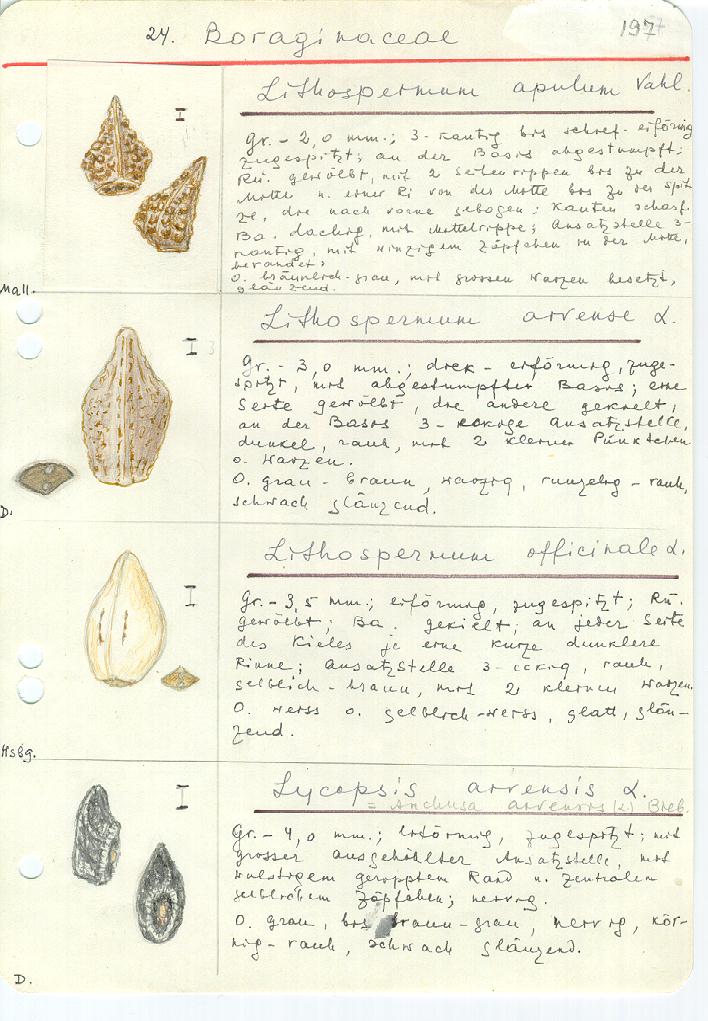 24. Boraginaceae
197
Lithospermum apulum Vahl.
Gr. - 2,0 mm.; 3-kantig bis schief-eiförmig
zugespitzt; an der Basis abgestumpft;
Rü. gewölbt, mit 2 Seitenrippen bis zu der
Mitte u. einer Ri von der Mitte bis zu der Spit
ze, die nach vorne gebogen; Kanten scharf.
Ba. dachig, mit Mittelrippe; Ansatzstelle 3-
kantig, mit winzigem Zäpfchen in der Mitte,
berandet;
O. bräunlich-grau, mit grossen Warzen besetzt,
glänzend.
Mall.
Lithospermum arvense L.
3
Gr. - 3,0 mm.; dick - eiförmig, zuge-
spitzt, mit abgestumpfter Basis; eine
Seite gewölbt, die andere gekielt,
an der Basis 3-eckige Ansatzstelle,
dunkel, rauh, mit 2 kleinen Pünktchen
o. Warzen.
O. grau - braun, warzig, runzelig - rauh,
schwach glänzend.
D.
Lithospermum officinale L.
Gr. - 3,5 mm.; eiförmig, zugespitzt; Rü.
gewölbt; Ba. gekielt; an jeder Seite
des Kieles je eine kurze dunklere
Rinne; Ansatzstelle 3-eckig, rauh,
gelblich-braun, mit 2 kleinen Warzen.
O. weiss o. gelblich-weiss, glatt, glän-
zend.
Hsbg.
Lycopsis arvensis L.
= Anchusa arvensis (L) Bieb.
Gr. - 4,0 mm.; eiförmig, zugespitzt; mit
grosser ausgehölter Ansatzstelle, mit
wulstigem geripptem Rand u. zentralen
gelblichem Zäpfchen; nervig.
O. grau, bis braun-grau, nervig, kör-
nig-rauh, schwach glänzend.
D.